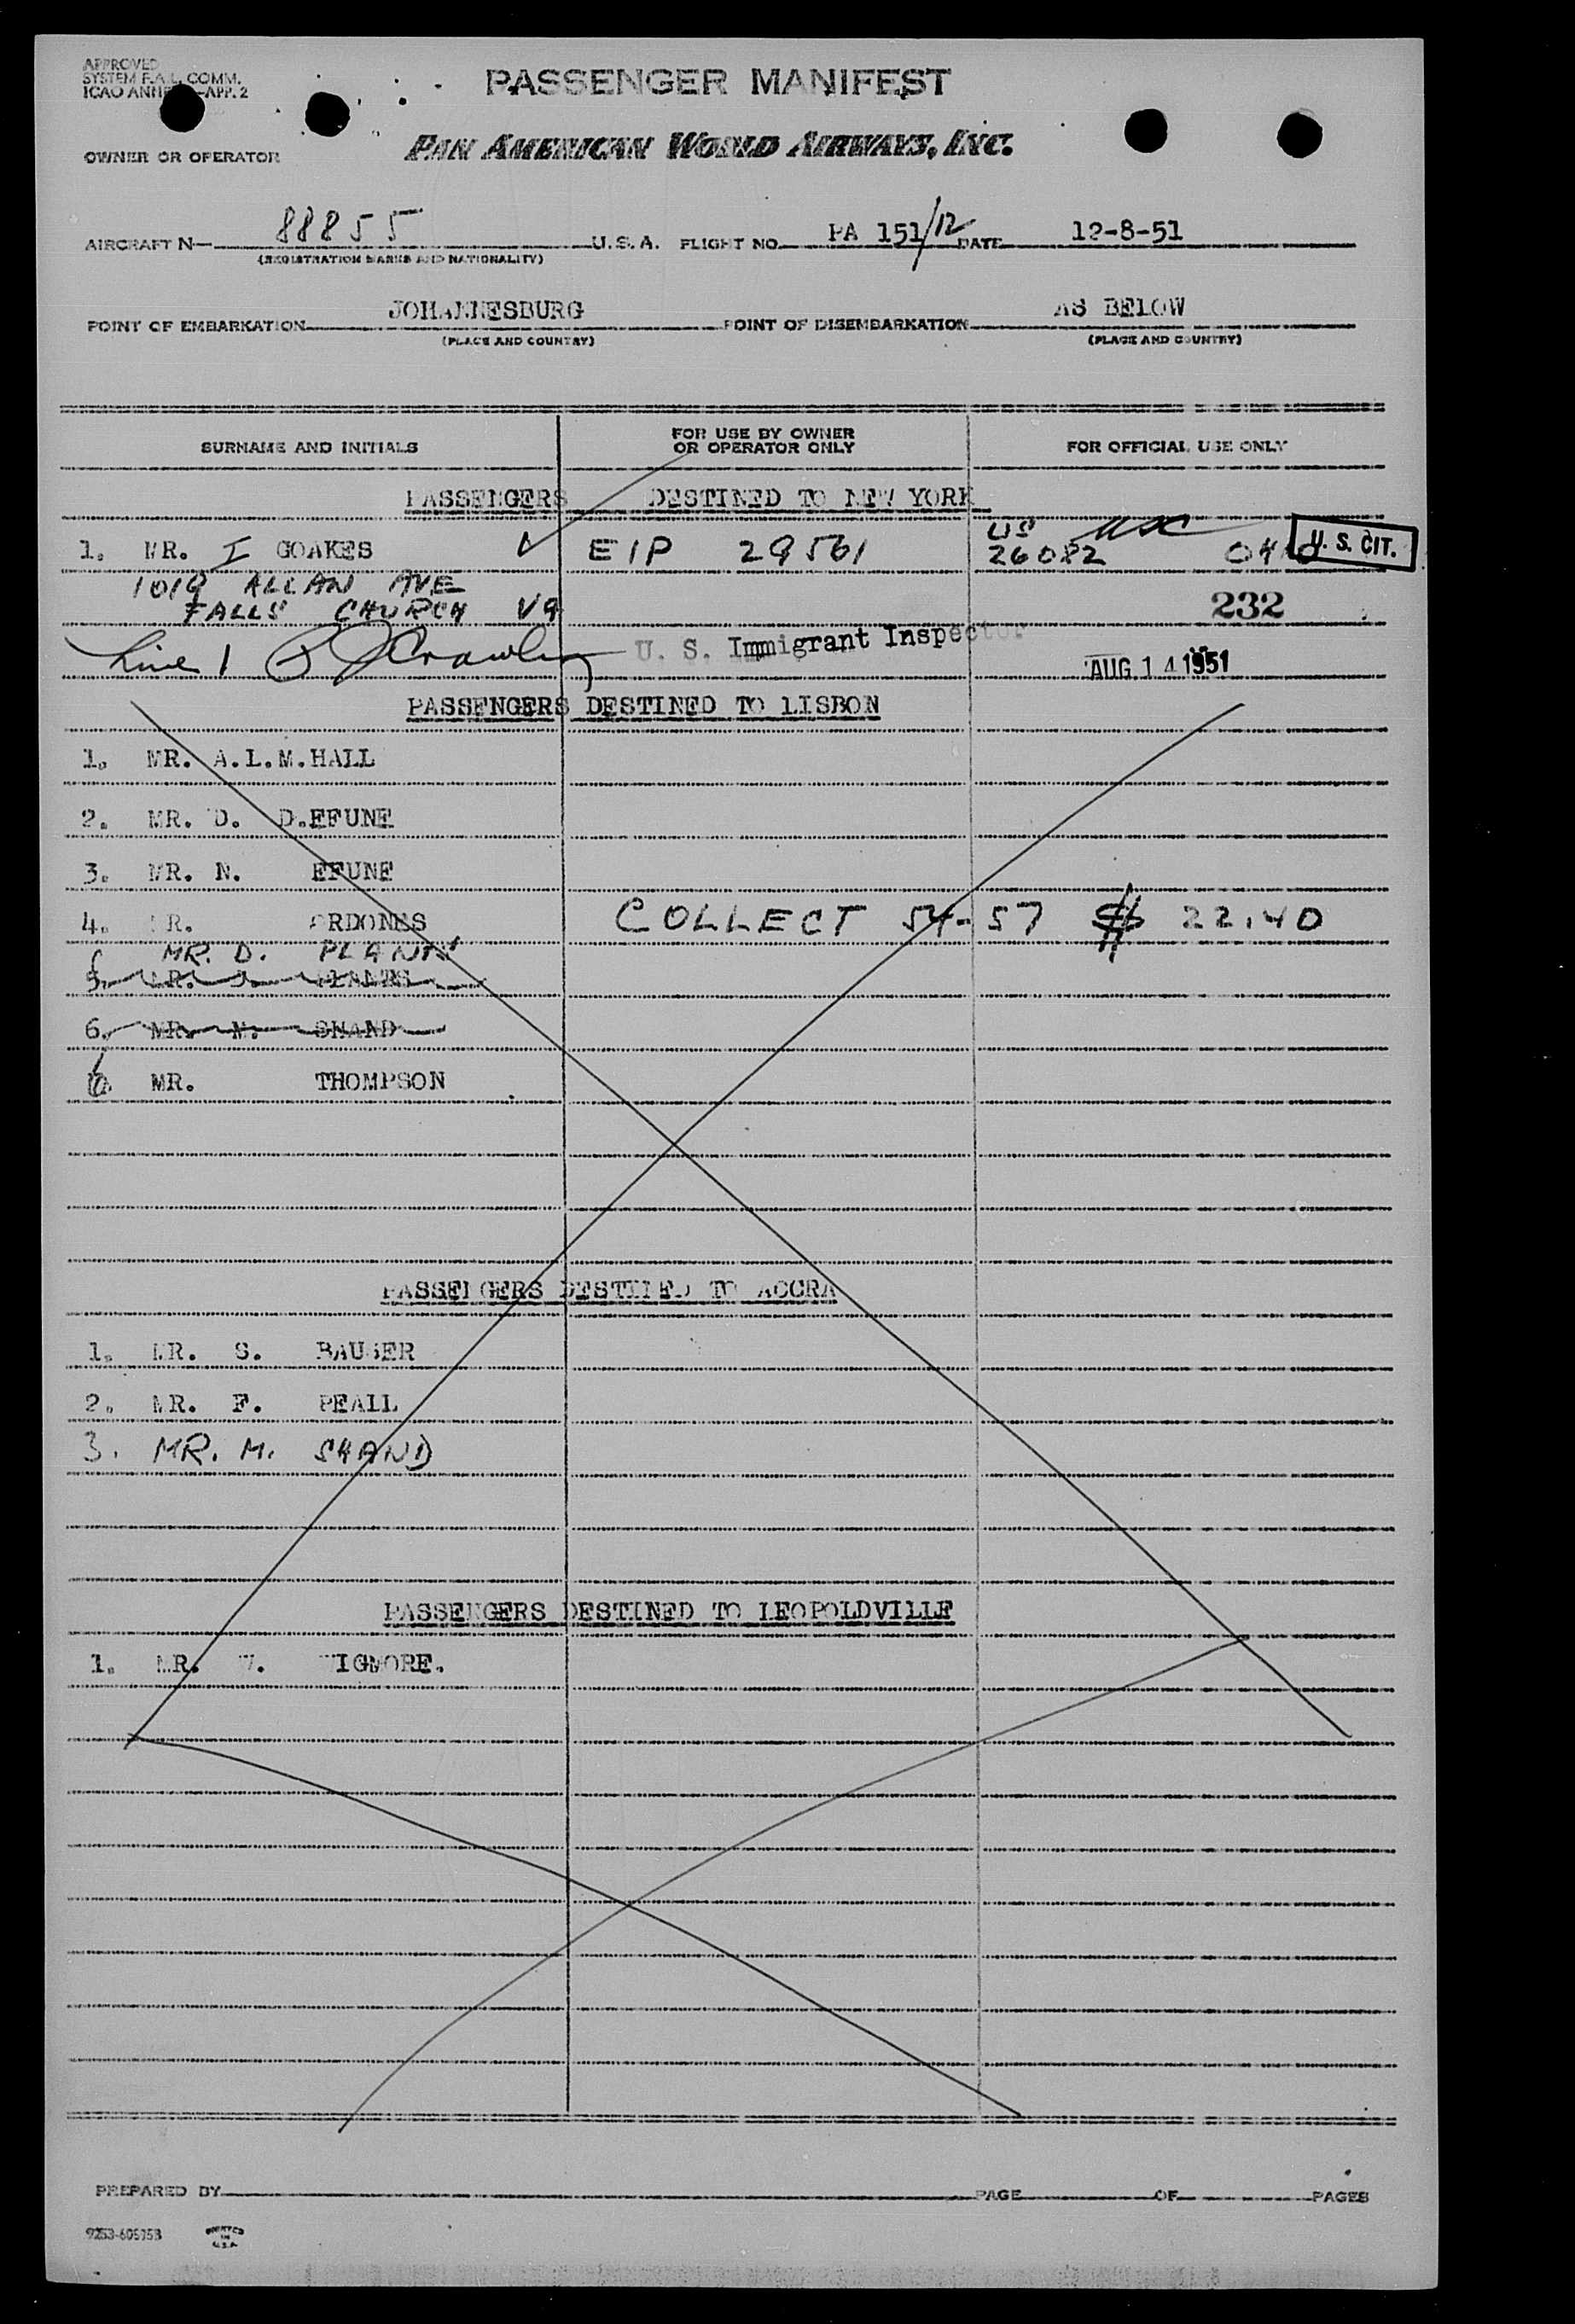 APPROVED
SYSTEM F.A.L. COMM.
ICAO ANNE —APP. 2
PASSENGER MANIFEST
OWNER OR OPERATOR PAN AMERICAN WORLD AIRWAYS, INC.
AIRCRAFT N— 88855 U.S.A. FLIGHT NO. PA 151/12 DATE 12-8-51
(REGISTRATION MARKS AND NATIONALITY)
POINT OF EMBARKATION JOHANNESBURG POINT OF DISEMBARKATION AS BELOW
(PLACE AND COUNTRY) (PLACE AND COUNTRY)
SURNAME AND INITIALS FOR USE BY OWNER OR OPERATOR ONLY FOR OFFICIAL USE ONLY
PASSENGERS DESTINED TO NEW YORK
US USC
1. MR. I GOAKES EIP 29561 26082 U. S. CIT.
1019 ALLAN AVE
FALLS CHURCH VA 232
Line 1 Crawley U. S. Immigrant Inspector AUG 14 1951
PASSENGERS DESTINED TO LISBON
1. MR. A.L.M.HALL
2. MR. D. D.EFUNE
3. MR. N. EFUNE
4. MR. ORDONES COLLECT 54-57 $ 22.40
MR. D. PLANN
5. MR.
6. MR. N. SHAND
6 MR. THOMPSON
PASSENGERS DESTINED TO ACCRA
1. MR. S. BAUSER
2. MR. F. PEALL
3. MR. M. SHAND
PASSENGERS DESTINED TO LEOPOLDVILLE
1. MR. W. WIGMORE.
PREPARED BY PAGE OF PAGES
PRINTED IN U.S.A.